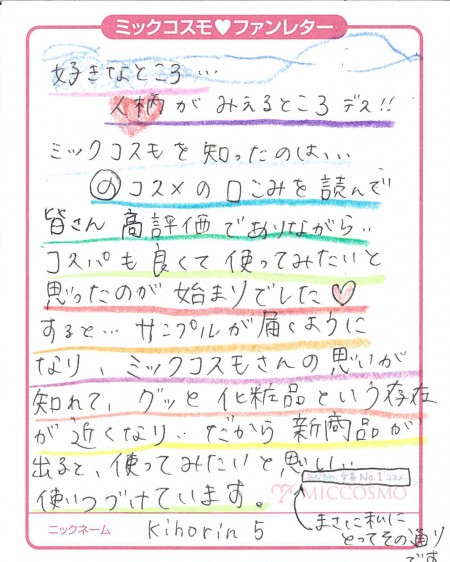 ミックコスモ♥ファンレター
好きなところ…
人柄がみえるところデス!!
ミックコスモを知ったのは、、、
@コスメの口こみを読んで
皆さん高評価でありながら‥
コスパも良くて使ってみたいと
思ったのが始まりでした♡
すると…サンプルが届くように
なり、ミックコスモさんの思いが
知れて、グッと化粧品という存在
が近くなり‥だから新商品が
出ると、使ってみたいと思い…
No.1コスメ
使いつづけています。
MICCOSMO
まさに私に
とってその通り
です
ニックネーム Kihorin5